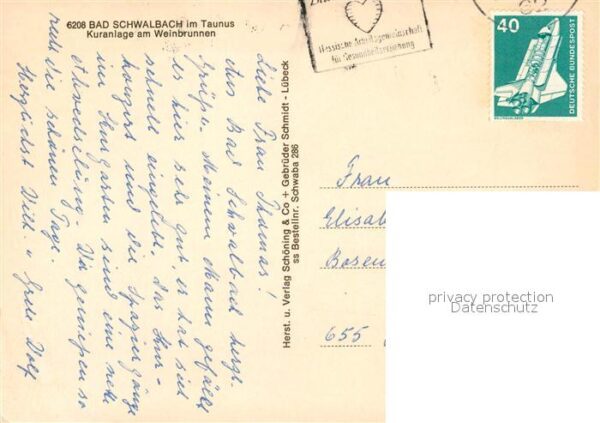 6208 BAD SCHWALBACH im Taunus
Kuranlage am Weinbrunnen
Liebe Frau Thomas!
Aus Bad Schwalbach herzl.
Grüße. Meinem Mann gefällt
es hier sehr gut, er hat sich
schnell eingelebt, das Kur-
konzert und die Spaziergänge
im Kurgarten sind eine nette
Abwechslung. Wir geniessen so
recht die schönen Tage.
Herzlichst Wilh. u.
Herst. u. Verlag Schöning & Co + Gebrüder Schmidt - Lübeck
ss Bestellnr. Schwaba 286
Hessische Arbeitsgemeinschaft
für Gesundheitserziehung
40
DEUTSCHE BUNDESPOST
Frau
Elisab
Bosen
655
privacy protection
Datenschutz